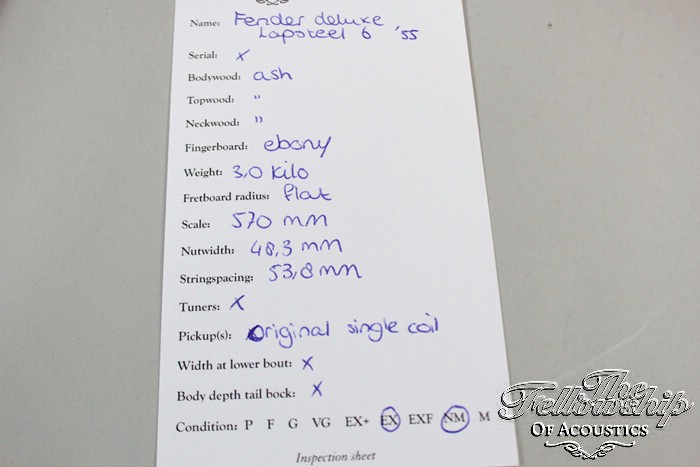 Name: Fender deluxe
Lapsteel 6 '55
Serial: x
Bodywood: ash
Topwood: "
Neckwood: "
Fingerboard: ebony
Weight: 3,0 kilo
Fretboard radius: flat
Scale: 570 mm
Nutwidth: 48,3 mm
Stringspacing: 53,8 mm
Tuners: x
Pickup(s): Original single coil
Width at lower bout: x
Body depth tail bock: x
Condition: P F G VG EX+ EX EXF NM M
Inspection sheet
The
Fellowship
OF ACOUSTICS